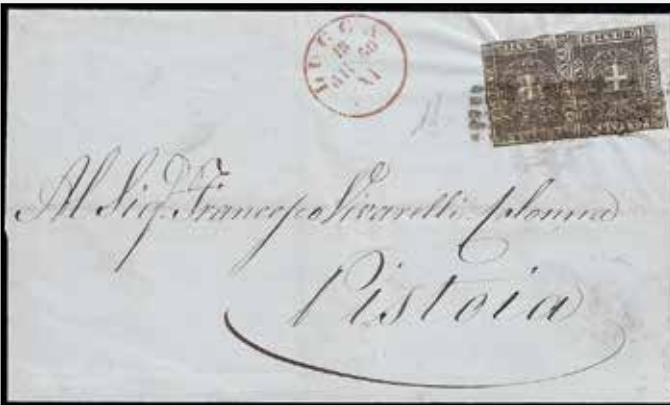 LUCCA
18
60
XI
Al Sig.r Francesco Vivarelli Colonna
Pistoia